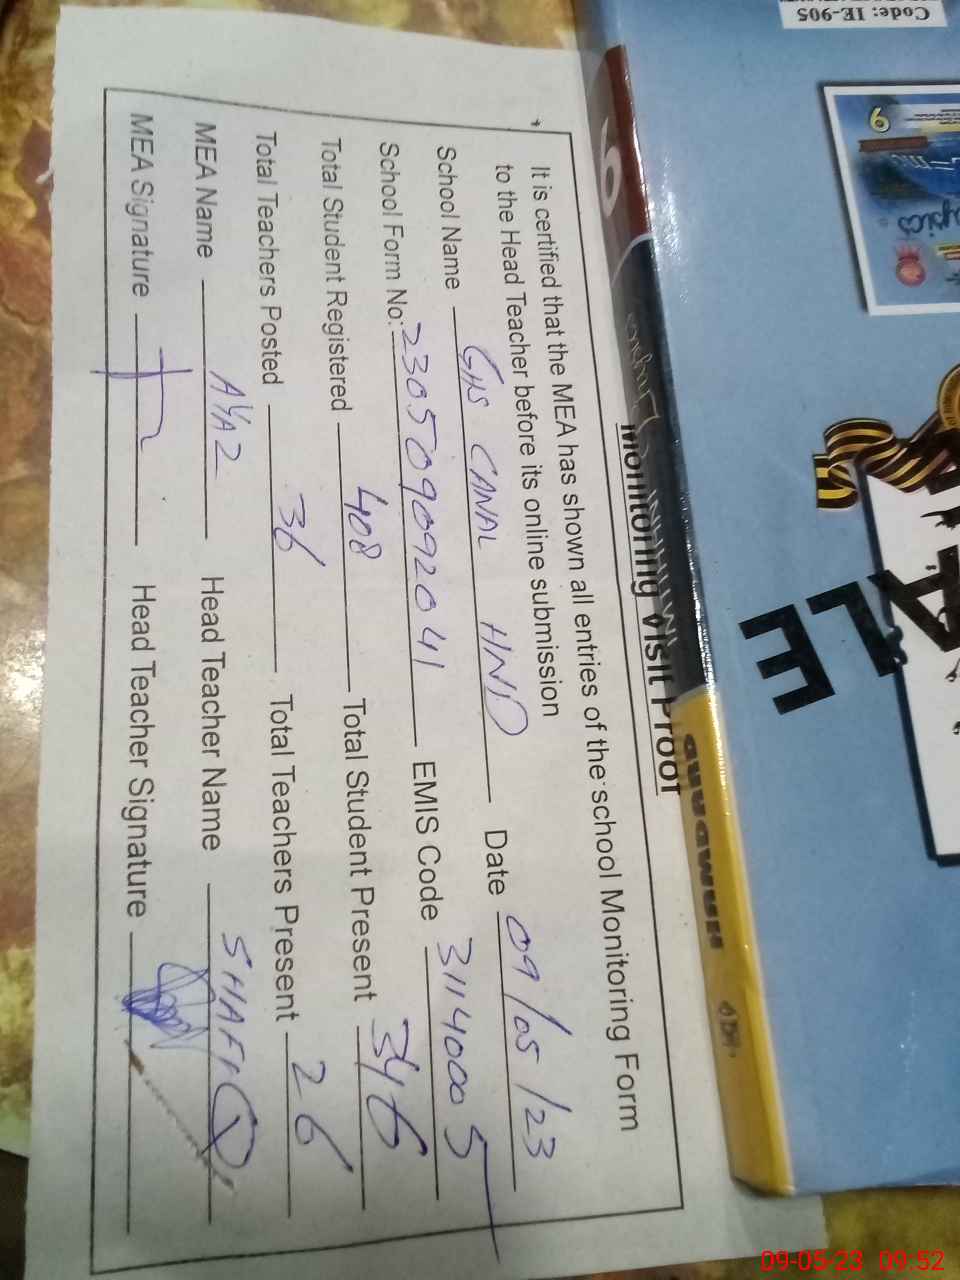 Monitoring Visit Proof
It is certified that the MEA has shown all entries of the school Monitoring Form
to the Head Teacher before its online submission
School Name GHS CANAL HND Date 09/05/23
School Form No: 23050909092041 EMIS Code 31140005
Total Student Registered 408 Total Student Present 346
Total Teachers Posted 36 Total Teachers Present 26
MEA Name AYAZ Head Teacher Name SHAFIQ
MEA Signature Head Teacher Signature
Code: IE-905
6
09-05-23 09:52